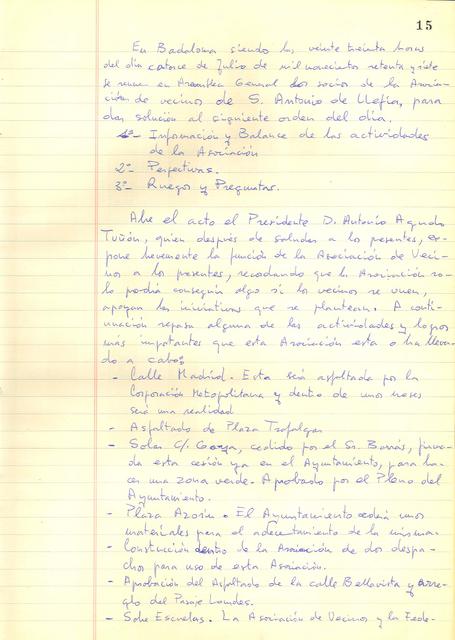 15
En Badalona siendo las veinte treinta horas
del día catorce de Julio de mil novecientos setenta y siete
se reune en Asamblea General los socios de la Asocia-
ción de vecinos de S. Antonio de Llefià, para
dar solución al siguiente orden del día.
1º- Información y Balance de las actividades
de la Asociación
2º- Perspectivas.
3º- Ruegos y Preguntas.
Abre el acto el Presidente D. Antonio Agudo
Tuñón, quien después de saludar a los presentes, ex-
pone brevemente la función de la Asociación de Veci-
nos a los presentes, recordando que la Asociación so-
lo podrá conseguir algo si los vecinos se unen,
apoyan las iniciativas que se plantean. A conti-
nuación repasa alguna de las actividades y logros
más importantes que esta Asociación esta o ha lleva-
do a cabo:
- Calle Madrid. Esta será asfaltada por la
Corporación Metropolitana y dentro de unos meses
será una realidad
- Asfaltado de Plaza Trafalgar
- Solar C/ cedido por el Sr. Barrás, firma-
da esta cesión ya en el Ayuntamiento, para ha-
cer una zona verde. Aprobado por el Pleno del
Ayuntamiento.
- Plaza Azorín. El Ayuntamiento cederá unos
materiales para el adecentamiento de la misma.
- Construcción dentro de la Asociación de dos despa-
chos para uso de esta Asociación.
- Aprobación del Asfaltado de la calle Bellavista y arre-
glo del Pasaje Lourdes.
- Sobre Escuelas. La Asociación de Vecinos y la Fede-